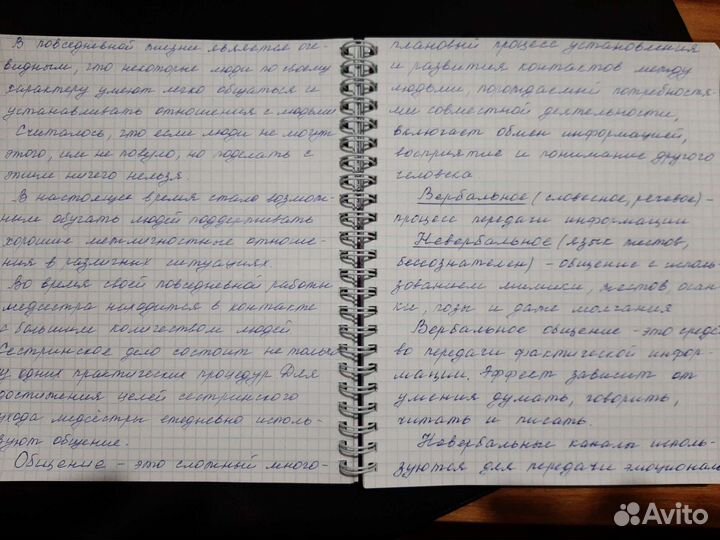 В повседневной жизни является оче-
видным, что некоторые люди по своему
характеру умеют легко общаться и
устанавливать отношения с людьми
Считалось, что если люди не могут
этого, им не повуло, но поделать с
этим ничего нельзя.
В настоящее время стало возмож-
ным обучать людей поддерживать
хорошие межличностные отноше-
ния в различных ситуациях.
Во время своей повседневной работы
медсестра находится в контакте
с большим количеством людей
Сестринское дело состоит не только
из одних практических процедур Для
достижения целей сестринского
ухода медсестры ежедневно исполь-
зуют общение.
Общение - это сложный много-
плановый процесс установления
и развития контактов между
людьми, порождаемый потребностя-
ми совместной деятельности,
включает обмен информацией,
восприятие и понимание другого
человека.
Вербальное (словесное, речевое) -
процесс передачи информации
Невербальное (язык жестов,
бессознателен) - общение с исполь-
зованием мимики, жестов осан
ки, позы и даже молчания
Вербальное общение - это средс
во передачи фактической инфор-
мации. Эффект зависит от
умения думать, говорить,
читать и писать.
Невербальные каналы исполь-
зуются для передачи эмоционал
Avito